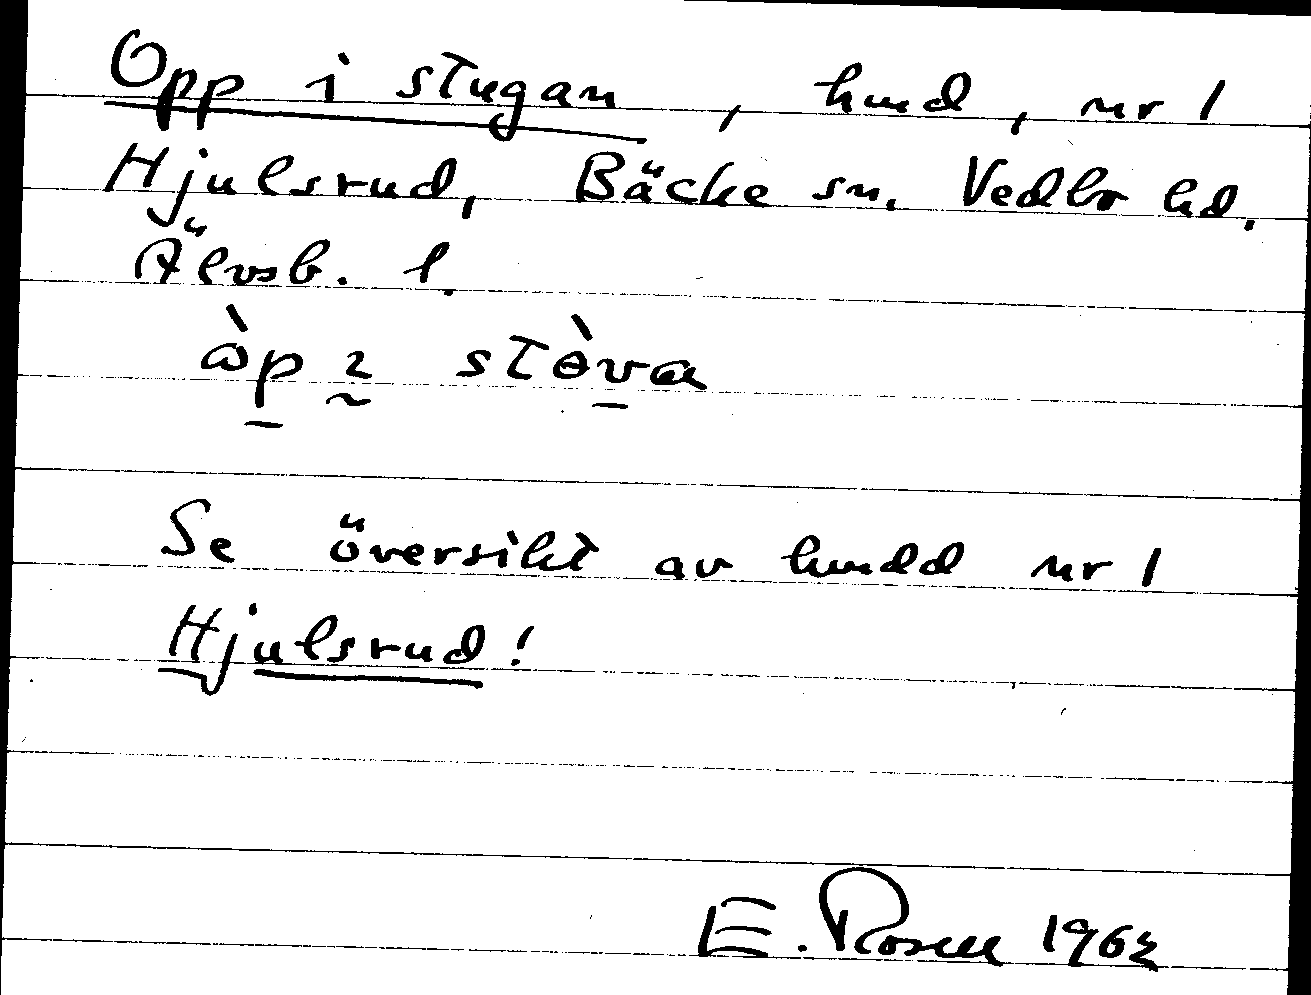 Opp i stugan, hmd, nr 1
Hjulsrud, Bäcke sn. Vedbo hd.
Älvsb. l.
òp ı stòva
Se översikt av hmdd nr 1
Hjulsrud!
E. Rosell 1963